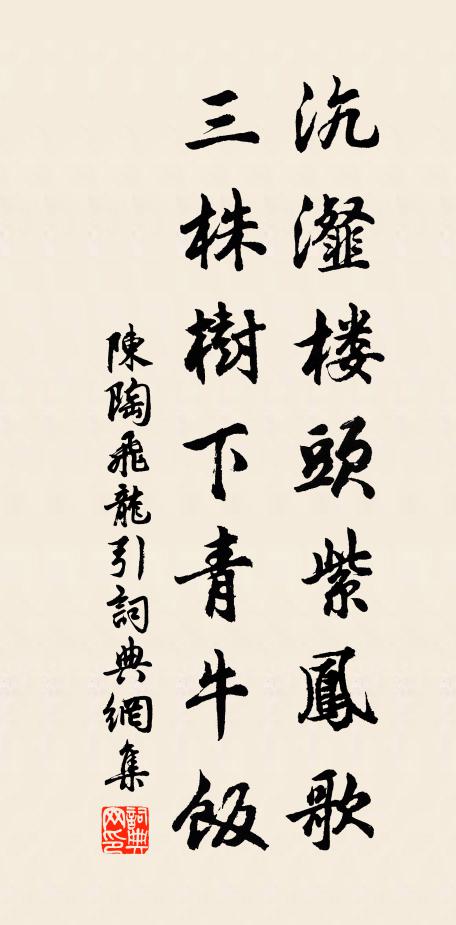 沆瀣楼頭紫鳳歌
三株樹下青牛飯
陳陶飛龍引詞典網集
詞典網印